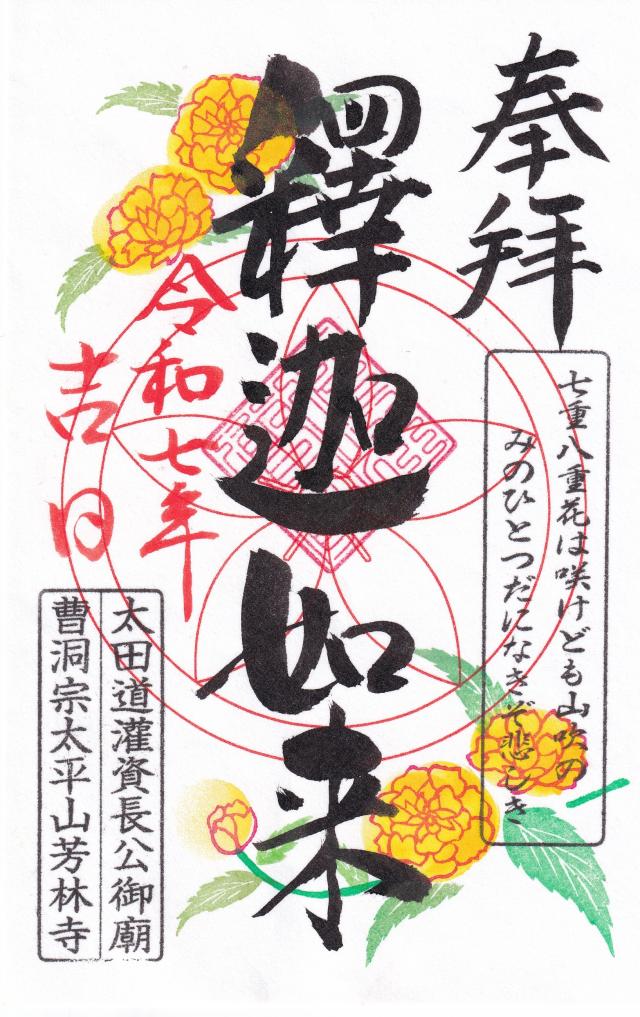 奉拝
七重八重花は咲けども山吹の
みのひとつだになきぞ悲しき
釋迦如来
令和七年
吉日
太田道灌資長公御廟
曹洞宗太平山芳林寺